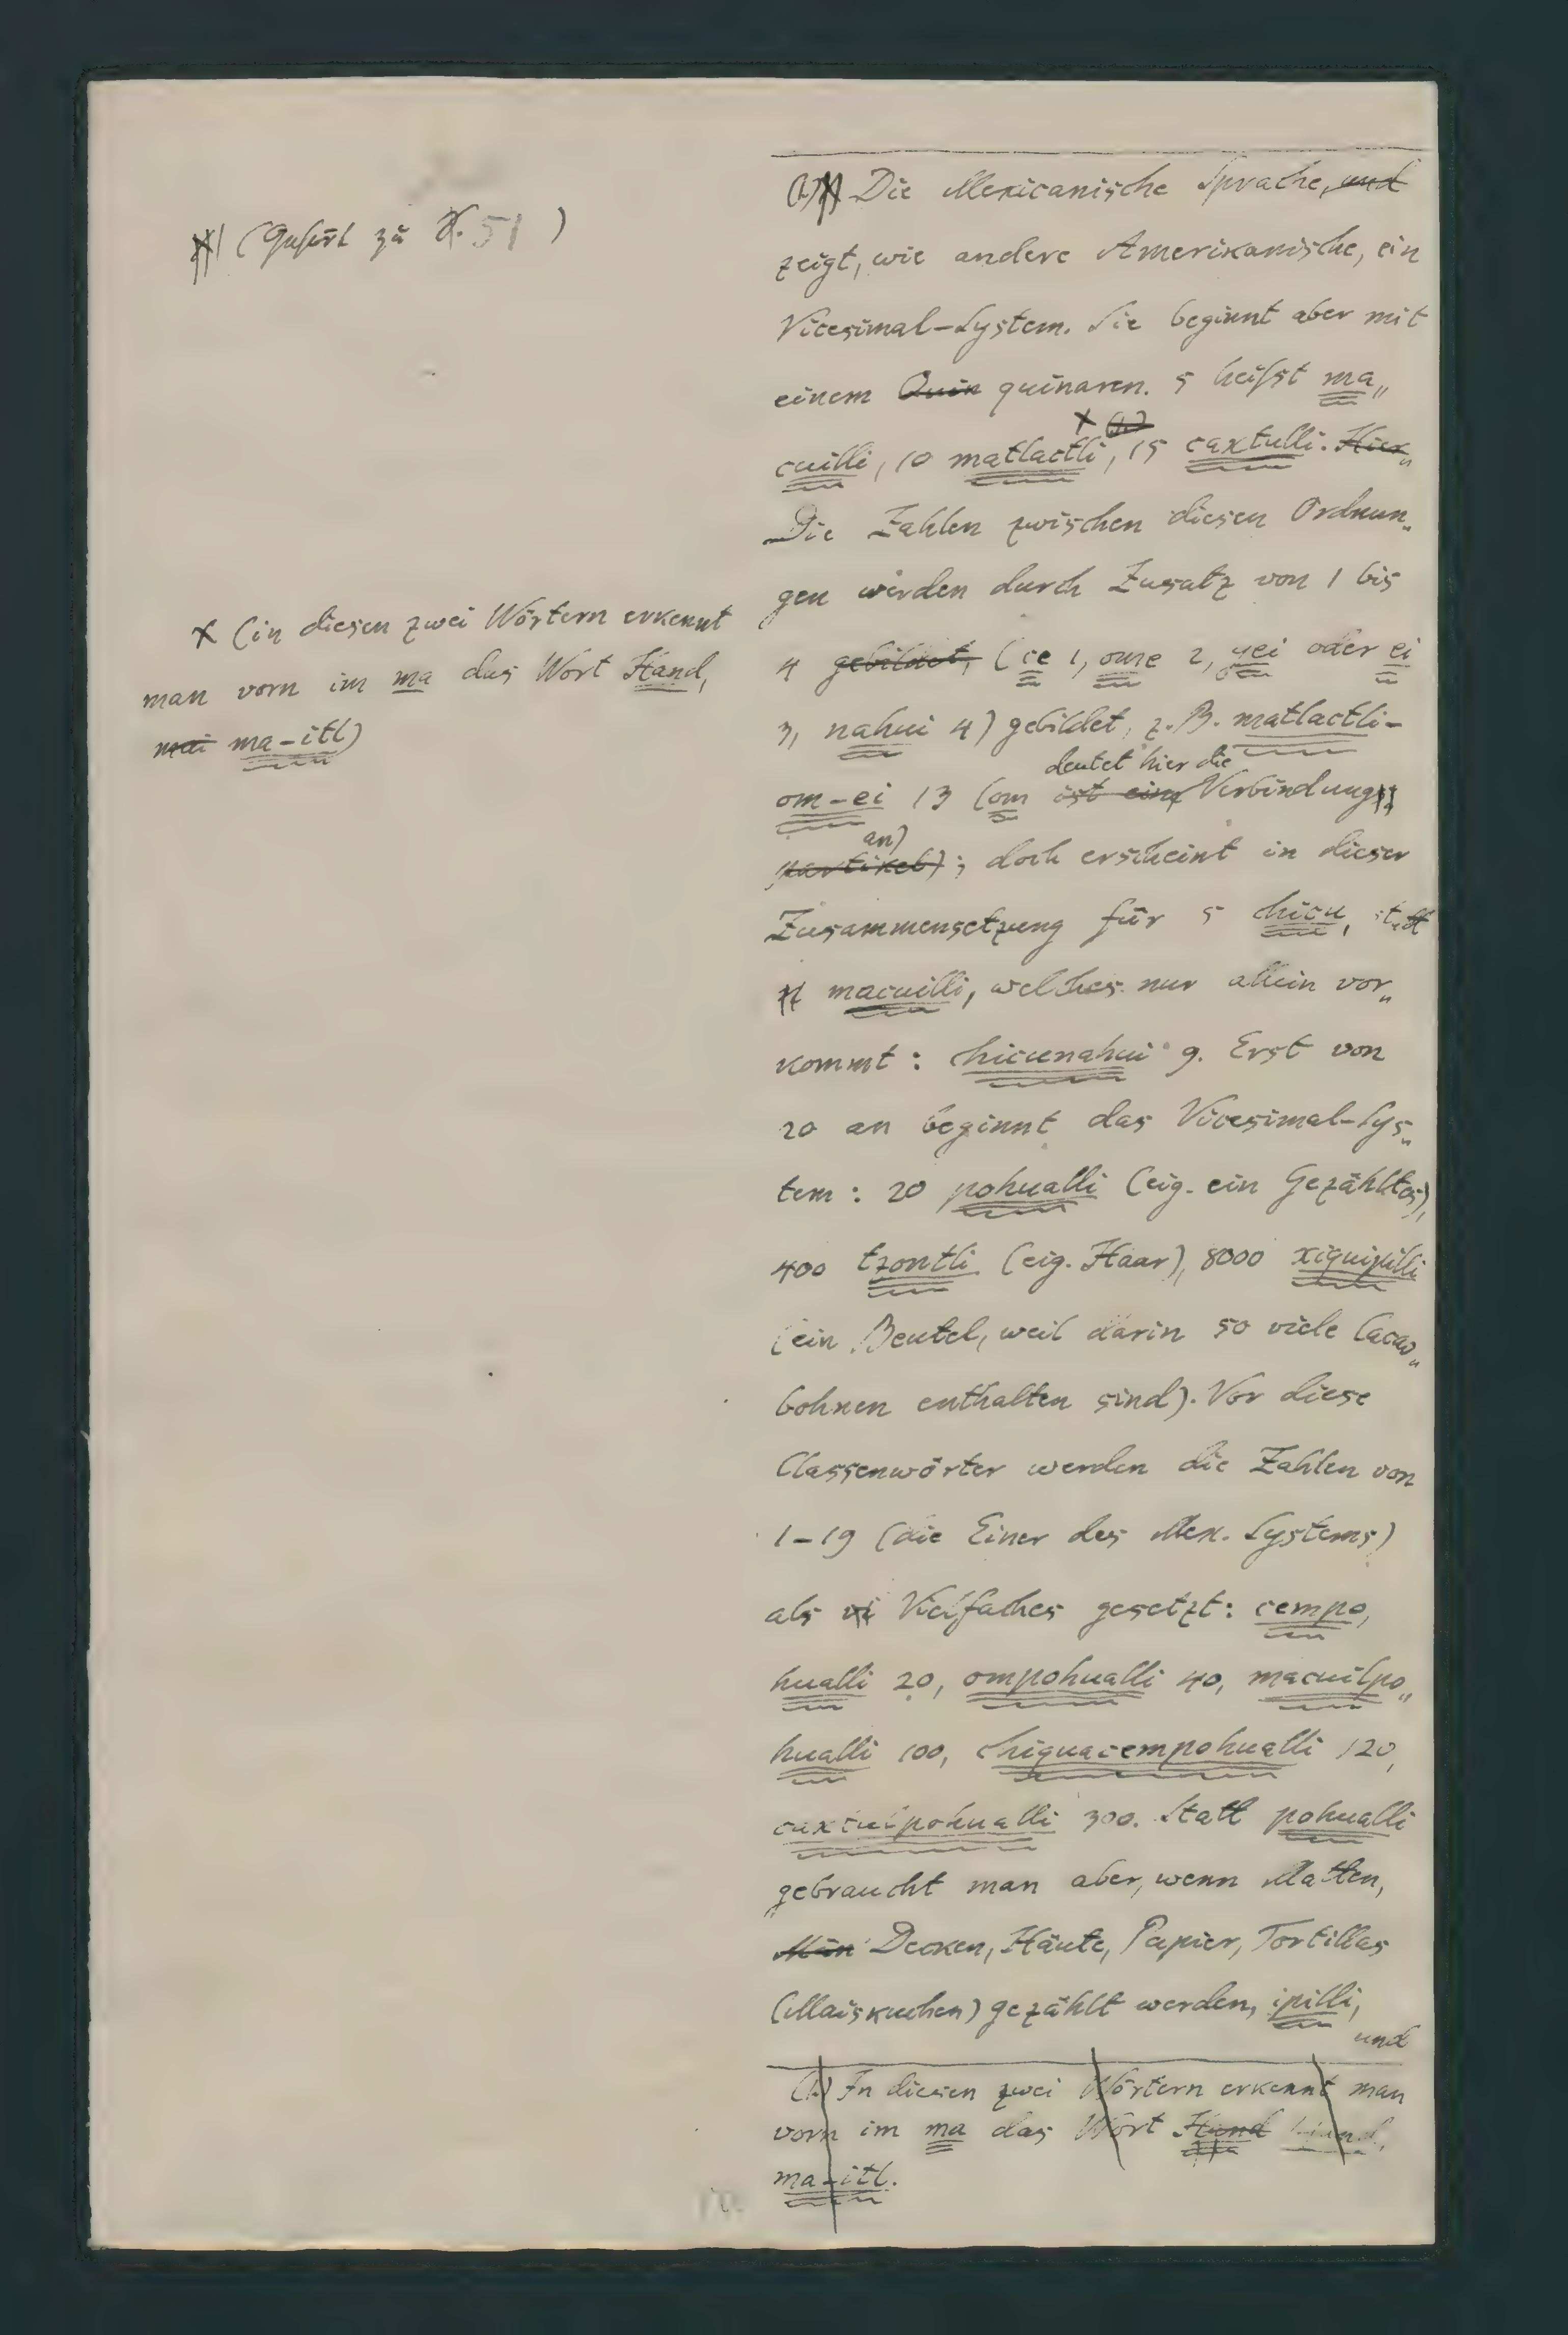 (Gehört zu S. 51)
× (in diesen zwei Wörtern erkennt
man vorn im ma das Wort Hand,
mai ma-itl)
(1) Die Mexicanische Sprache, und
zeigt, wie andere Amerikanische, ein
Vicesimal-System. Sie beginnt aber mit
einem Quin quinaren. 5 heißt ma„
× (1)
cuilli, 10 matlactli, 15 caxtulli. Hier„
Die Zahlen zwischen diesen Ordnun„
gen werden durch Zusatz von 1 bis
4 gebildet, (ce 1, ome 2, yei oder ei
3, nahui 4) gebildet, z. B. matlactli-
deutet hier die
om-ei 13 (om ist eine Verbindung
an)
partikel); doch erscheint in dieser
Zusammensetzung für 5 chicu, statt
macuilli, welches nur allein vor„
kommt: chicunahui 9. Erst von
20 an beginnt das Vicesimal-Sys„
tem: 20 pohualli (eig. ein Gezähltes),
400 tzontli (eig. Haar), 8000 xiquipilli
(ein Beutel, weil darin so viele Cacao„
bohnen enthalten sind). Vor diese
Classenwörter werden die Zahlen von
1-19 (die Einer des Mex. Systems)
als vi Vielfaches gesetzt: cempo„
hualli 20, ompohualli 40, macuilpo„
hualli 100, chiquacempohualli 120,
caxtulpohualli 300. Statt pohualli
gebraucht man aber, wenn Matten,
Män Decken, Häute, Papier, Tortillas
(Maiskuchen) gezählt werden, ipilli,
und
(1) In diesen zwei Wörtern erkennt man
vorn im ma das Wort Hand Hand,
ma-itl.